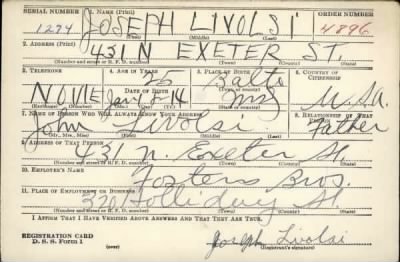 SERIAL NUMBER 1. NAME (Print) ORDER NUMBER
1294 JOSEPH LIVOLSI 4896
(First) (Middle) (Last)
2. ADDRESS (Print)
431 N EXETER ST.
(Number and street or R. F. D. number) (Town) (County) (State)
3. TELEPHONE 4. AGE IN YEARS 5. PLACE OF BIRTH 6. COUNTRY OF CITIZENSHIP
25 Balto
NONE DATE OF BIRTH (Town or county)
Jan 14 Md U.S.A.
(Exchange) (Number) (Mo.) (Day) (Yr.) (State or country)
7. NAME OF PERSON WHO WILL ALWAYS KNOW YOUR ADDRESS 8. RELATIONSHIP OF THAT PERSON
John Livolsi Father
(Mr., Mrs., Miss) (First) (Middle) (Last)
9. ADDRESS OF THAT PERSON
431 N. Exeter St
(Number and street or R. F. D. number) (Town) (County) (State)
10. EMPLOYER'S NAME
Fosters Bros.
11. PLACE OF EMPLOYMENT OR BUSINESS
320 Holliday St
(Number and street or R. F. D. number) (Town) (County) (State)
I AFFIRM THAT I HAVE VERIFIED ABOVE ANSWERS AND THAT THEY ARE TRUE.
REGISTRATION CARD
D. S. S. Form 1 (over) Joseph Livolsi
(Registrant's signature)